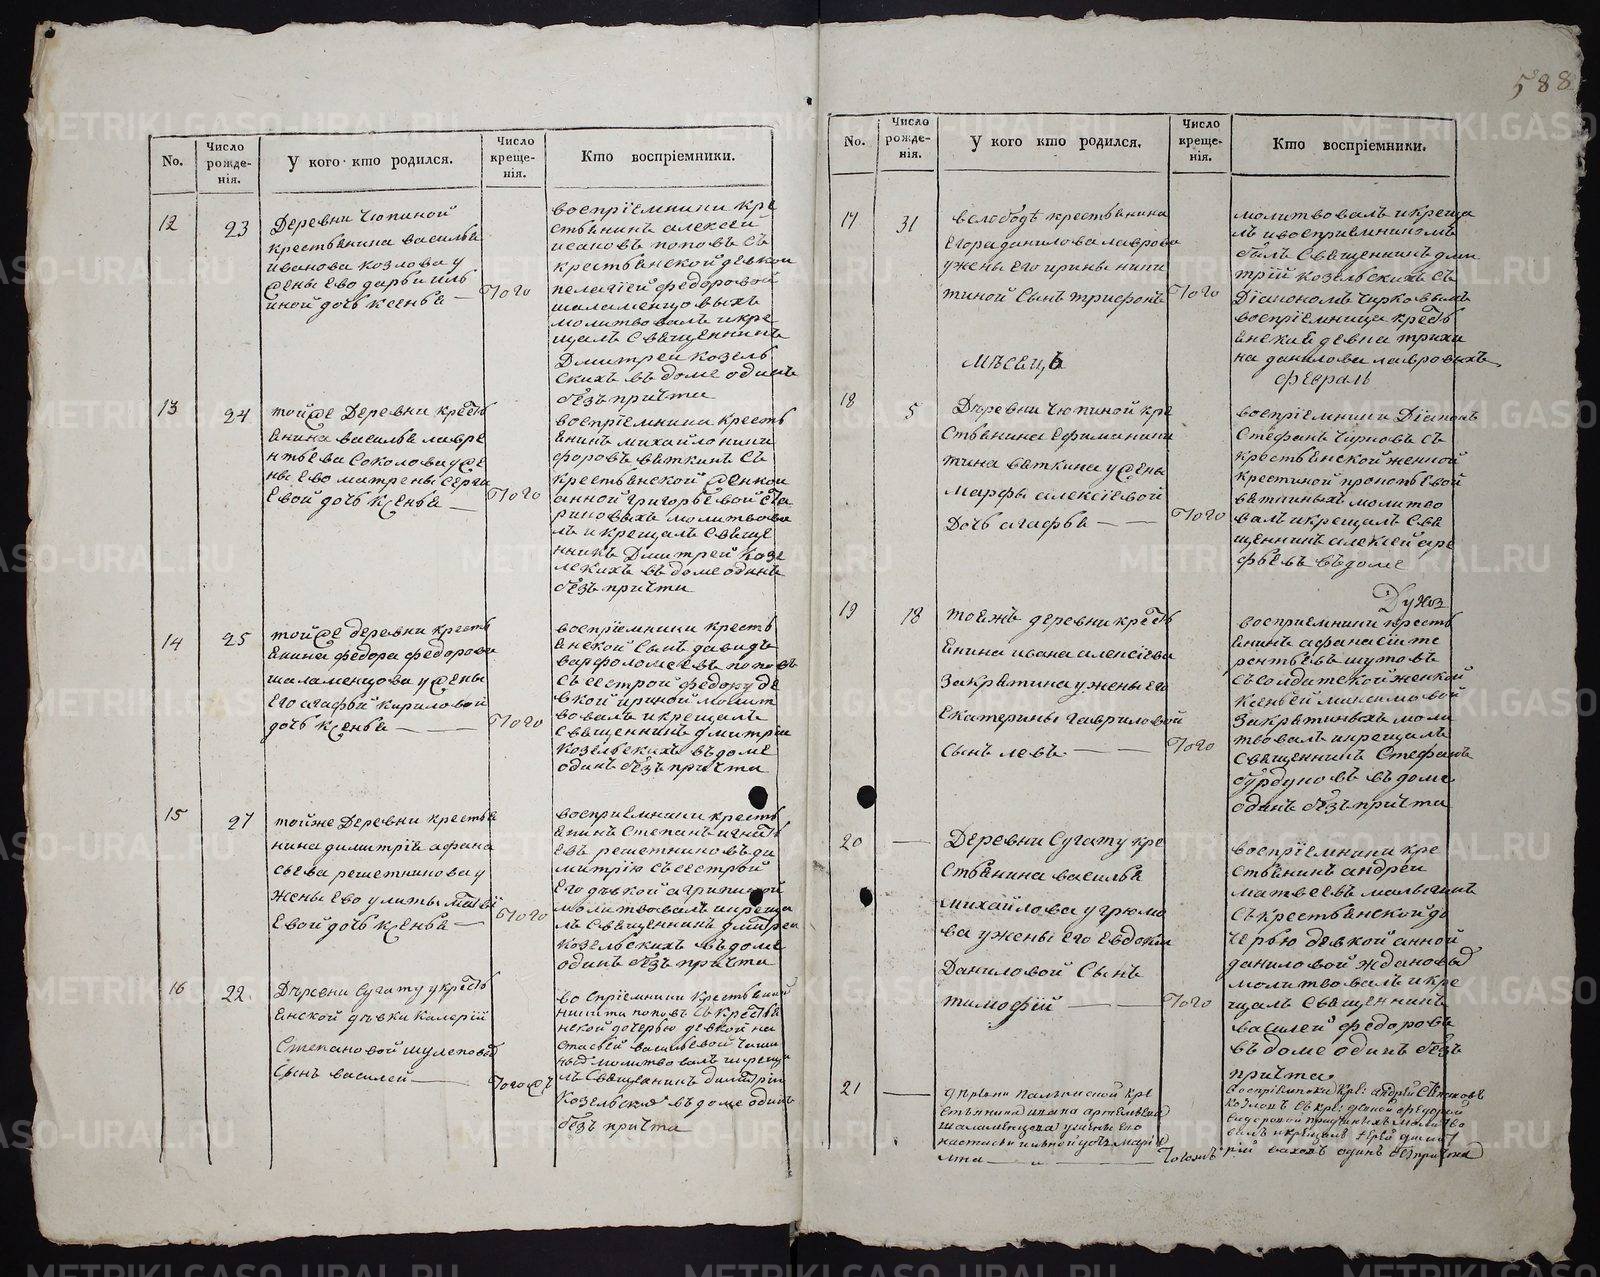 588
No.
Число рожде-нія.
У кого кто родился.
Число креще-нія.
Кто воспріемники.
12
23
Деревни Чюпиной
крестьянина василья
иванова козлова у
жены ево дарьи иль
иной дочь ксенья
Того
воспріемники кре
стьянинъ алексей
исаковъ поповъ съ
крестьянской девкой
пелагіей федоровой
шаламенцовыхъ
молитвовалъ и кре
щалъ священникъ
Дмитрей козель
скихъ въ доме одинъ
безъ причта
13
24
тойже Деревни кресть
янина василья лавре
нтьева Соколова у же
ны ево матрены серги
евой дочь ксенья
Того
воспріемники кресть
янинъ михайло ники
форовъ вяткинъ съ
крестьянской женкой
анной григорьевой
молитвова
лъ и крещалъ свяще
нникъ Дмитрей козе
льскихъ въ доме одинъ
безъ причта
14
25
тойже деревни кресть
янина федора федорова
шаламенцова у жены
его агафьи кириловой
дочь ксенья
Того
воспріемники кресть
янской сынъ давидъ
варфоломеевъ поповъ
съ сестрой федору де
вкой ириной молит
вовалъ и крещалъ
священникъ дмитрій
козельскихъ въ доме
одинъ безъ причта
15
27
тойже Деревни крестья
нина димитрія афана
сьева решетникова у
жены ево улиты
евой дочь ксенья
Того
воспріемники кресть
янинъ Степанъ игнать
евъ решетниковъ ди
митрию съ сестрой
его девкой агрипиной
молитвовалъ и креща
лъ священникъ дмитреи
козельскихъ въ доме
одинъ безъ причта
16
22
Деревни Сугату у кресть
янской девки
Степановой
Сынъ василей
Тогожъ
воспріемники крестьянинъ
никита поповъ съ крестья
нской дочерью девкой на
стасьей васильевой
молитвовалъ и креща
лъ священникъ димитрій
козельской въ доме одинъ
безъ причта
No.
Число рожде-нія.
У кого кто родился.
Число креще-нія.
Кто воспріемники.
17
31
в слободѣ крестьянина
Егора данилова лаврова
у жены его ирины ники
тиной сынъ трифонъ
Того
молитвовалъ и креща
лъ и воспріемникомъ
былъ священникъ дми
трій козельскихъ съ
Діакономъ Чирковымъ
воспріемница кресть
янская девка
на данилова лавровыхъ
Мѣсецъ
февраль
18
5
Деревни Чюпиной кре
стьянина ефима ники
тина вяткина у жены
Марфы алексіевой
Дочь агафья
Того
воспріемники Діаконъ
Стефанъ Чирковъ съ
крестьянской женкой
крестиной прокопьевой
вяткиныхъ молитво
валъ и крещалъ свя
щенникъ алексей аре
фьевъ въ доме
19
18
тоежъ деревни кресть
янина ивана алексіева
Закрятина у жены его
Екатерины гавриловой
сынъ левъ
Того
воспріемники кресть
янинъ афанасіи те
рентьевъ шутовъ
съ солдатской женкой
ксеньей максимовой
Закрятиныхъ моли
твовалъ и крещалъ
священникъ Стефанъ
Бурдуковъ въ доме
одинъ безъ причта
20
Деревни Сугату кре
стьянина василья
михайлова угрюмо
ва у жены его Евдокіи
Даниловой Сынъ
тимофій
Того
воспріемники кре
стьянинъ андреи
матвеевъ малыгинъ
съ крестьянской до
черью девкой анной
даниловой ждановыхъ
молитвовалъ и кре
щалъ священникъ
василей федоровъ
въ доме одинъ безъ
причта
21
деревни Палкинской кре
стьянина ивана артемьева
шаламенцова у жены его
настасьи дочь марі
Тогожъ
одинъ безъ причта